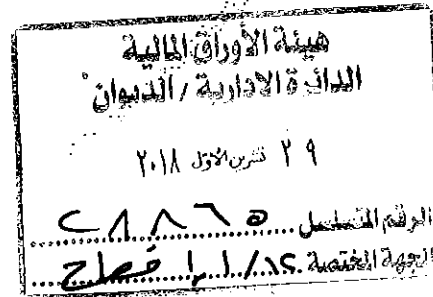 هيئة الأوراق المالية
الدائرة الادارية / الديوان
٢٩ تشرين الأول ٢٠١٨
الرقم المتسلسل ٢٨٨٦٥
الجهة المختصة